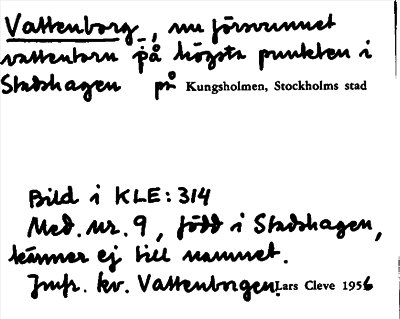 Vattenborg, nu försvunnet
vattentorn på högsta punkten i
Stadshagen på Kungsholmen, Stockholms stad
Bild i KLE: 314
Med. nr. 9, född i Stadshagen,
känner ej till namnet.
Jmfr. kv. Vattenborgen. Lars Cleve 1956